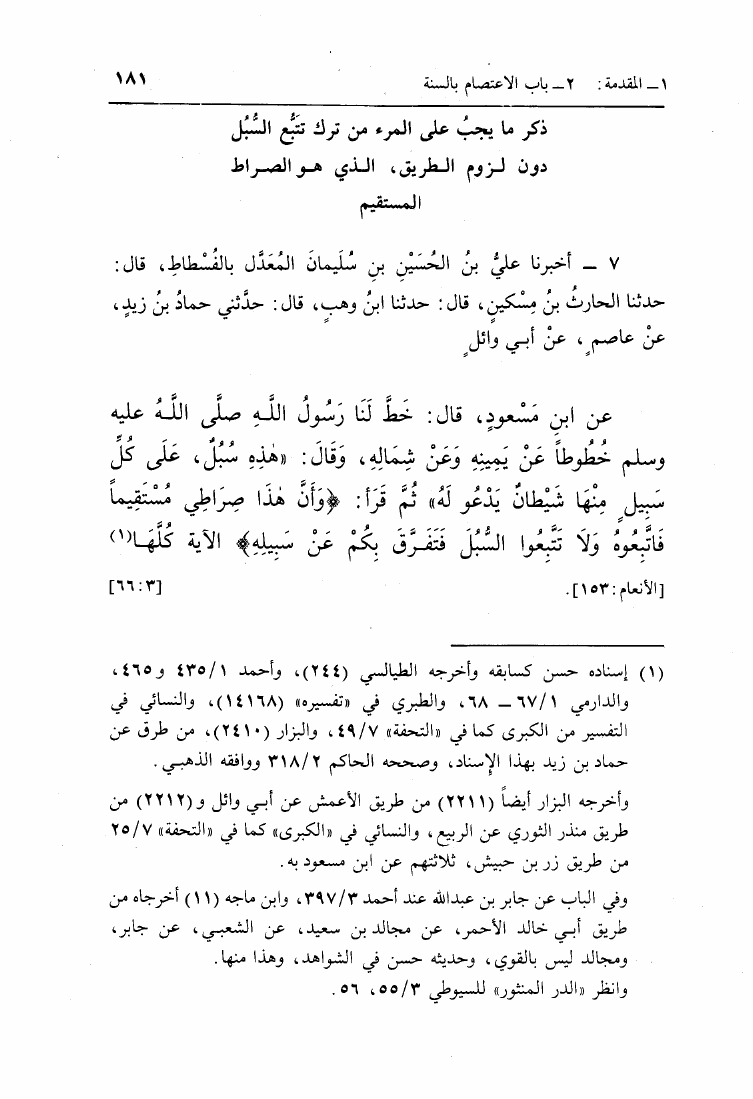 ١ـ المقدمة: ٢ـ باب الاعتصام بالسنة ١٨١
ذكر ما يجبُ على المرء من ترك تتَبُّع السُّبُل
دون لـزوم الـطريق، الـذي هـو الصـراط
المستقيم
٧ ـ أخبرنا عليُّ بنُ الحُسَيْنِ بنِ سُلَيمانَ المُعَدَّل بالفُسْطاطِ، قال:
حدثنا الحارثُ بنُ مِسْكينٍ، قال: حدثنا ابنُ وهبٍ، قال: حدَّثني حمادُ بنُ زيدٍ،
عنْ عاصمٍ، عنْ أبـي وائلٍ
عن ابنِ مَسْعودٍ، قال: خَطَّ لَنَا رَسُولُ اللَّـهِ صلَّى اللَّـهُ عليه
وسلم خُطُوطاً عَنْ يَمِينِهِ وَعَنْ شِمَالِهِ، وَقَالَ: «هٰذِهِ سُبُلٌ، عَلَى كُلِّ
سَبِيلٍ مِنْهَا شَيْطَانٌ يَدْعُو لَهُ» ثُمَّ قَرَأَ: ﴿وَأَنَّ هٰذَا صِرَاطِي مُسْتَقِيماً
فَاتَّبِعُوهُ وَلَا تَتَّبِعُوا السُّبُلَ فَتَفَـرَّقَ بِكُمْ عَنْ سَبِيلِهِ﴾ الآية كُلَّهَـا(١)
[الأنعام: ١٥٣]. [٣: ٦٦]
(١) إسناده حسن كسابقه وأخرجه الطيالسي (٢٤٤)، وأحمد ٤٣٥/١ و٤٦٥،
والدارمي ٦٧/١ ـ ٦٨، والطبري في «تفسيره» (١٤١٦٨)، والنسائي في
التفسير من الكبرى كما في «التحفة» ٤٩/٧، والبزار (٢٤١٠)، من طرق عن
حماد بن زيد بهذا الإسناد، وصححه الحاكم ٣١٨/٢ ووافقه الذهبـي.
وأخرجه البزار أيضاً (٢٢١١) من طريق الأعمش عن أبـي وائل و(٢٢١٢) من
طريق منذر الثوري عن الربيع، والنسائي في «الكبرى» كما في «التحفة» ٢٥/٧
من طريق زر بن حبيش، ثلاثتهم عن ابن مسعود به.
وفي الباب عن جابر بن عبدالله عند أحمد ٣٩٧/٣، وابن ماجه (١١) أخرجاه من
طريق أبـي خالد الأحمر، عن مجالد بن سعيد، عن الشعبـي، عن جابر،
ومجالد ليس بالقوي، وحديثه حسن في الشواهد، وهذا منها.
وانظر «الدر المنثور» للسيوطي ٥٥/٣، ٥٦.